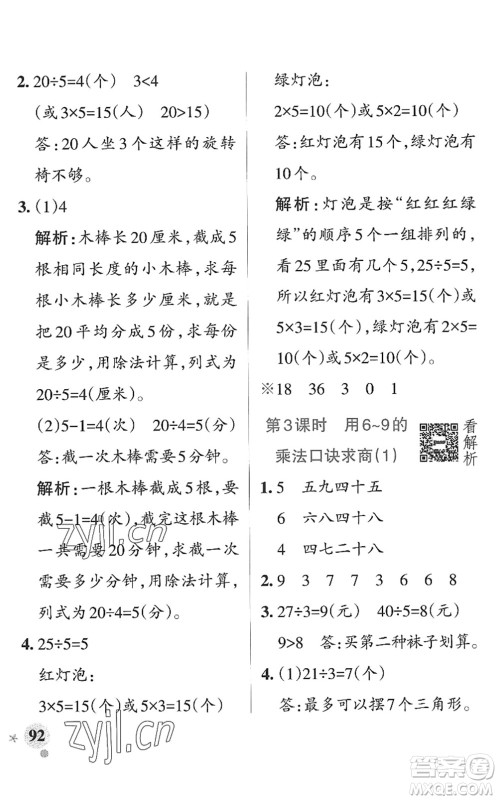 2. 20÷5=4(个) 3<4
(或3×5=15(人) 20>15)
答:20人坐3个这样的旋转
椅不够。
3. (1)4
解析:木棒长20厘米,截成5
根相同长度的小木棒,求每
根小木棒长多少厘米,就是
把20平均分成5份,求每份
是多少,用除法计算,列式为
20÷5=4(厘米)。
(2)5-1=4(次)
20÷4=5(分钟)
答:截一次需要5分钟。
解析:一根木棒截成5根,需要
5-1=4(次),截完这根木棒
一共需要20分钟,求截一次
需要多少分钟,用除法计算,
列式为20÷4=5(分钟)。
4. 25÷5=5
红灯泡:
3×5=15(个)或5×3=15(个)
绿灯泡:
2×5=10(个)或5×2=10(个)
答:红灯泡有15个,绿灯泡有
10个。
解析:灯泡是按“红红红绿
绿”的顺序5个一组排列的,
看25里面有几个5,25÷5=5,
所以红灯泡有3×5=15(个)或
5×3=15(个),绿灯泡有2×5=
10(个)或5×2=10(个)。
※18 36 3 0 1
第3课时 用6~9的
乘法口诀求商(1)
看解析
1. 5 五九四十五
6 六八四十八
4 四七二十八
2. 9 3 7 7 3 6 6 8
3. 27÷3=9(元) 40÷5=8(元)
9>8 答:买第二种袜子划算。
4. (1)21÷3=7(个)
答:最多可以摆7个三角形。
92
zyjl.cn
zyjl.cn
作业精灵
答案圈
MXQE.COM